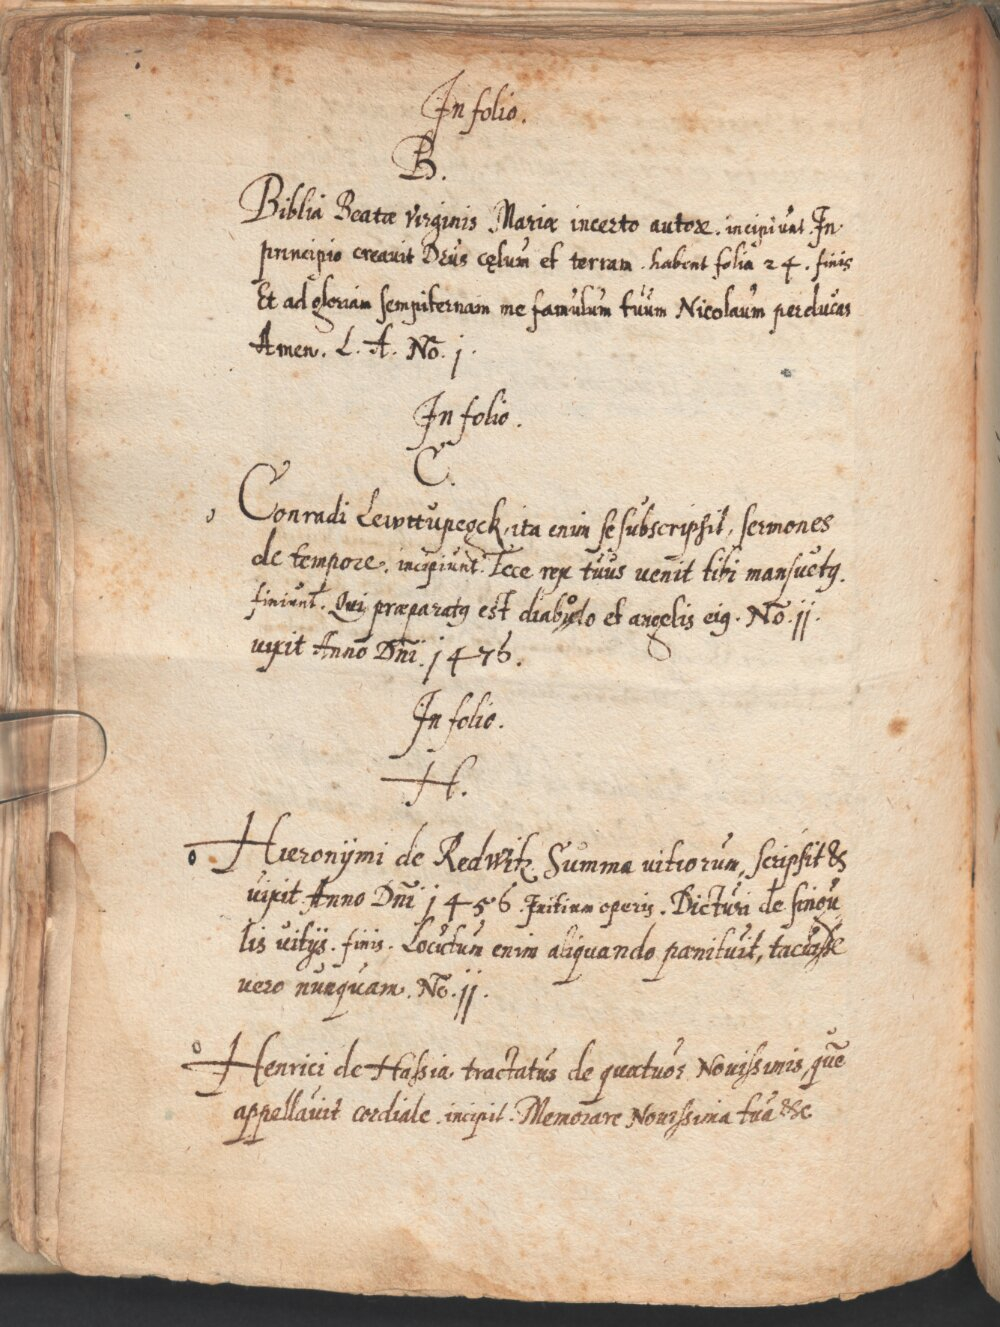 In folio.
B.
Biblia Beatæ Virginis Mariæ incerto autore. incipiunt. In
principio creauit Deus cęlum et terram. habent folia 24. finis
Et ad gloriam sempiternam me famulum tuum Nicolaum perducas
Amen. L. A. No. j.
In folio.
C.
Conradi ita enim se subscripsit, sermones
de tempore. incipiunt. Ecce rex tuus uenit tibi mansuetꝯ.
finiunt. Qui præparatꝯ est diabolo et angelis eiꝯ. No. jj.
uixit Anno Dñi. 1476.
In folio.
H.
Hieronÿmi de Redwitz Summa uitiorum, scripsit &
uixit Anno Dñi 1456. Initium operis. Dicturi de singu
lis uitijs. finis. Locutum enim aliquando pænituit, tacuisse
uero nunquam. No. jj.
Henrici de Hassia tractatus de quatuor Nouissimis, quē
appellauit cordiale. incipit. Memorare Nouissima tua &c